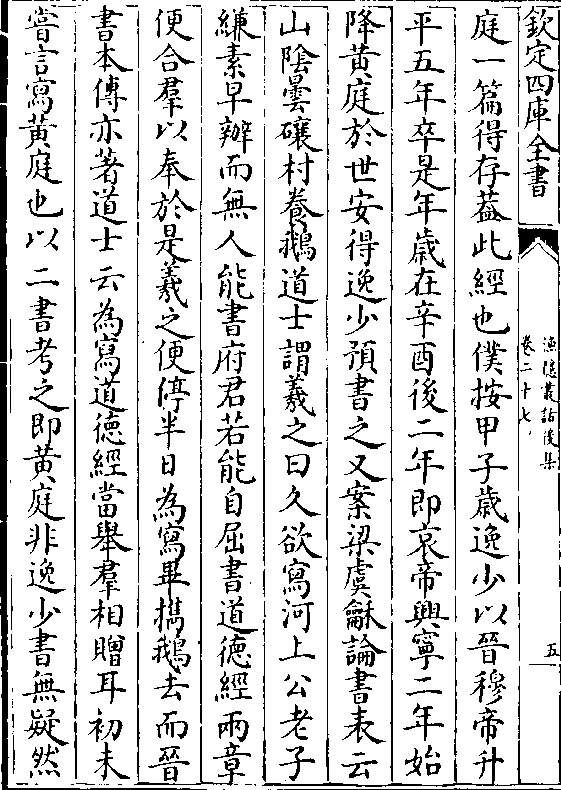 欽定四庫全書
漁隱叢話後集
卷二十七
五
庭一篇得存葢此經也僕按甲子歲逸少以晉穆帝升
平五年卒是年歲在辛酉後二年即哀帝興寧二年始
降黃庭於世安得逸少預書之又案梁虞龢論書表云
山陰曇𥖠村養鵝道士謂羲之曰久欲寫河上公老子
縑素早辦而無人能書府君若能自屈書道德經兩章
便合羣以奉於是羲之便停半日為寫畢㩦鵝去而晉
書本傳亦著道士云為寫道德經當舉羣相贈耳初未
嘗言寫黃庭也以二書考之即黃庭非逸少書無疑然